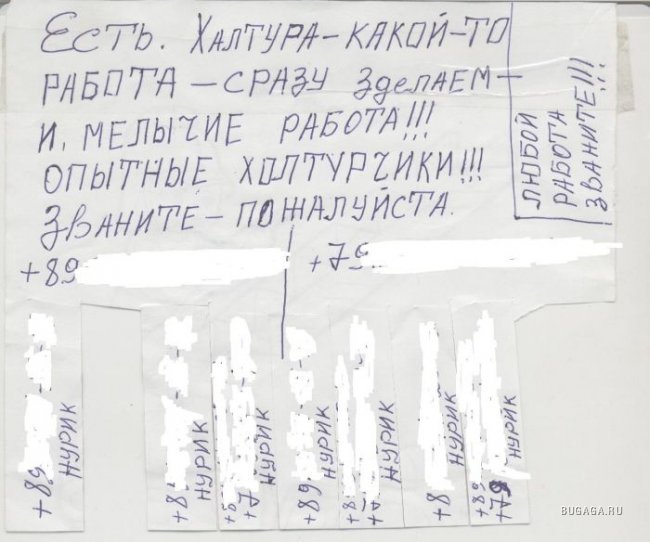 ЕСТЬ. ХАЛТУРА-КАКОЙ-ТО
РАБОТА-СРАЗУ ЗДЕЛАЕМ-
И. МЕЛЫЧИЕ РАБОТА!!!
ОПЫТНЫЕ ХОЛТУРЧИКИ!!!
ЗВАНИТЕ-ПОЖАЛУЙСТА.
ЛЮБОЙ
РАБОТА
ЗВАНИТЕ!!!
+89
+79
+89
НУРИК
+8
НУРИК
+7
НУРИК
+89
НУРИК
+8
НУРИК
+8
НУРИК
НУРИК
BUGAGA.RU